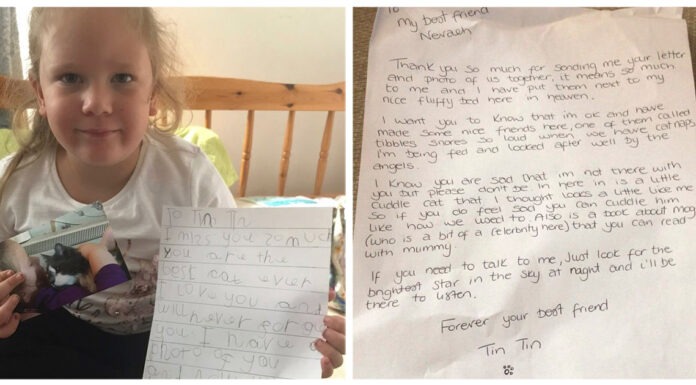 To Tin Tin
I miss you so much
you are the
best cat ever
I love you and
will never for get
you. I have a
photo of you
and
To
My best friend
Nevaeh
Thank you so much for sending me your letter
and photo of us together, it means so much
to me and I have put them next to my
nice fluffy bed here in heaven.
I want you to know that im ok and have
made some nice friends here, one of them called
tibbles snores so loud when we have catnaps
i'm being fed and looked after well by the
angels.
I know you are sad that im not there with
you but please don't be. In here in is a little
cuddle cat that I thought looks a little like me
so if you do feel sad you can cuddle him
like how we used to. Also is a book about mog
(who is a bit of a celebrity here) that you can read
with mummy.
If you need to talk to me, Just look for the
brightest star in the sky at night and i'll be
there to listen.
Forever your best friend
Tin Tin